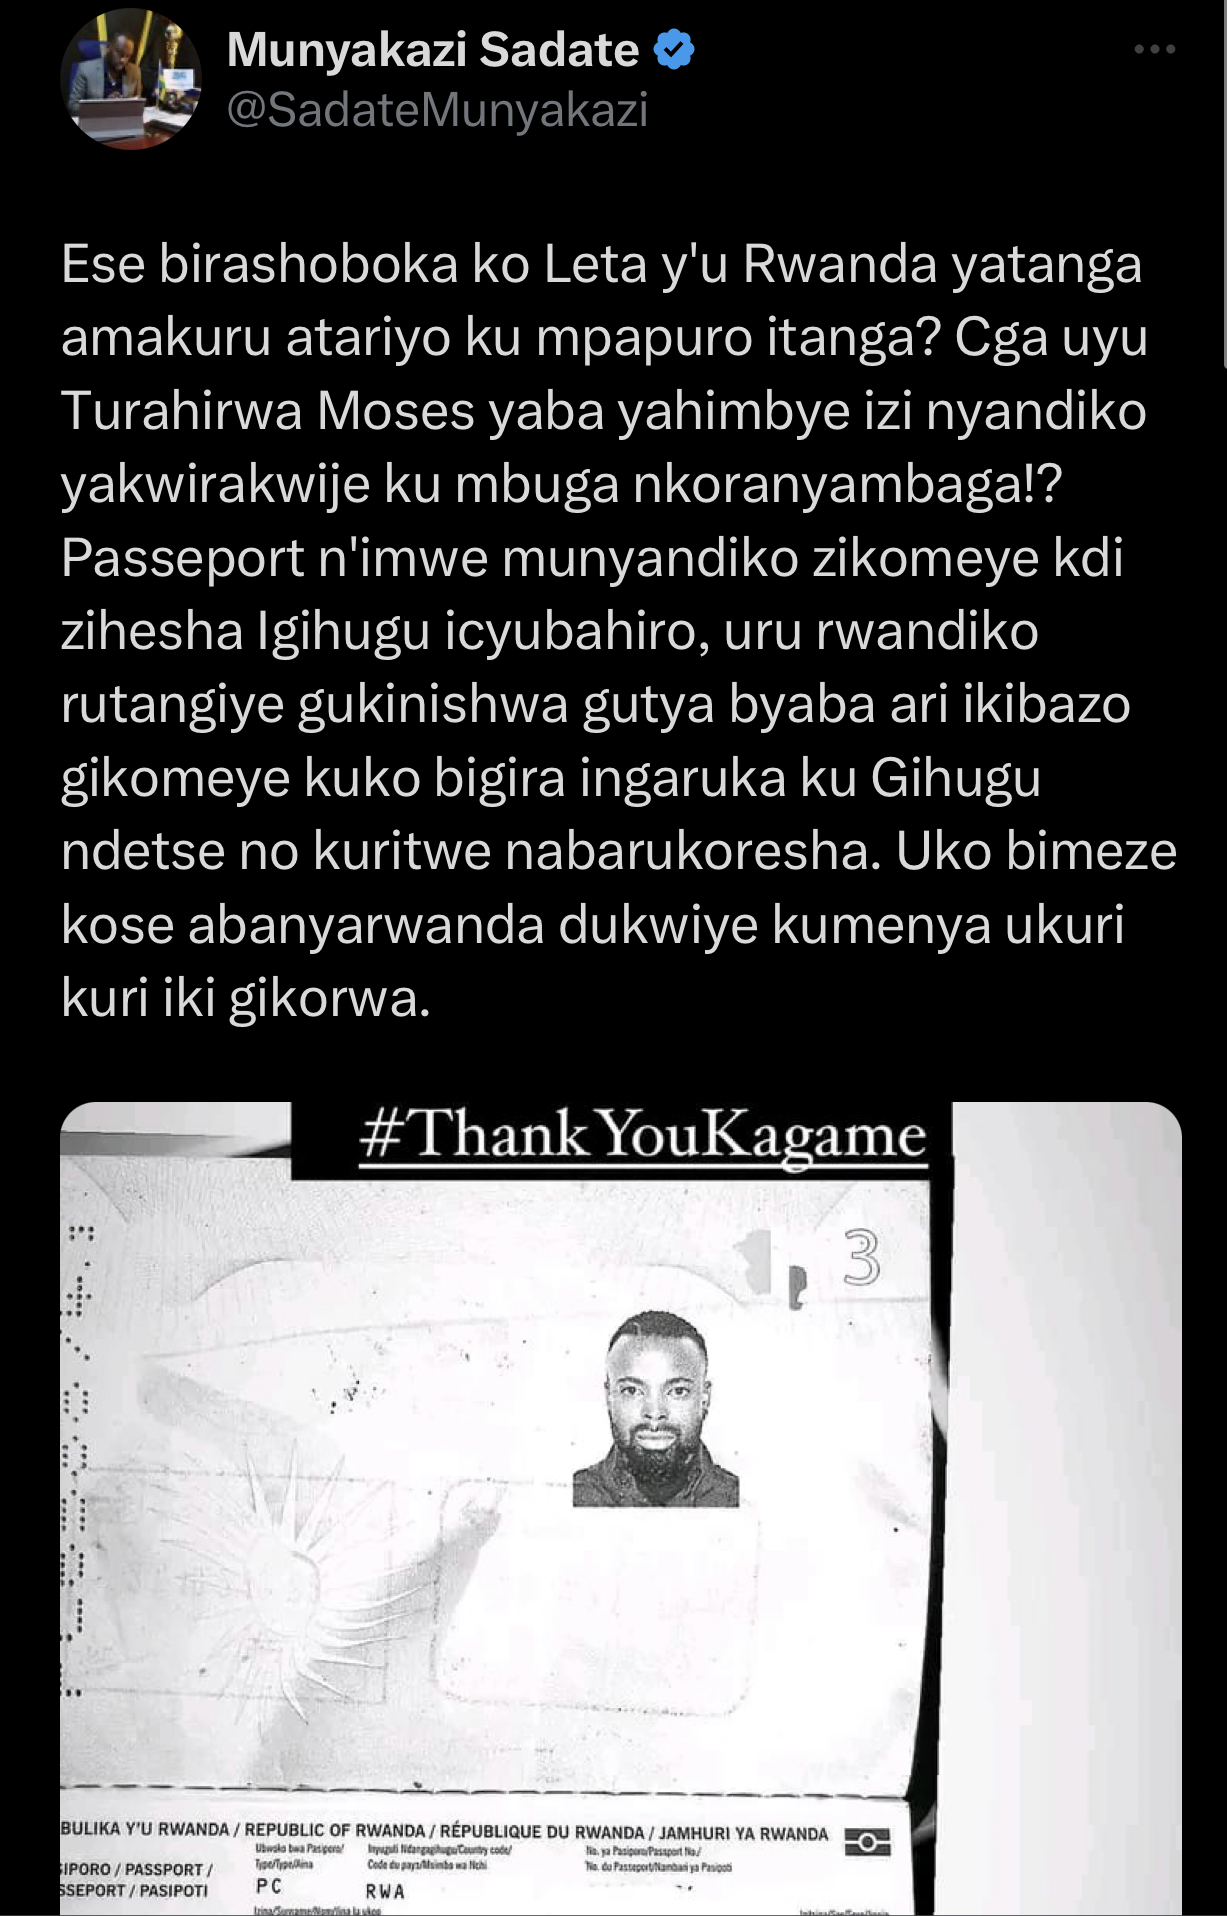 Munyakazi Sadate
@SadateMunyakazi
Ese birashoboka ko Leta y'u Rwanda yatanga
amakuru atariyo ku mpapuro itanga? Cga uyu
Turahirwa Moses yaba yahimbye izi nyandiko
yakwirakwije ku mbuga nkoranyambaga!?
Passeport n'imwe munyandiko zikomeye kdi
zihesha Igihugu icyubahiro, uru rwandiko
rutangiye gukinishwa gutya byaba ari ikibazo
gikomeye kuko bigira ingaruka ku Gihugu
ndetse no kuritwe nabarukoresha. Uko bimeze
kose abanyarwanda dukwiye kumenya ukuri
kuri iki gikorwa.
#ThankYouKagame
3
BULIKA Y'U RWANDA / REPUBLIC OF RWANDA / RÉPUBLIQUE DU RWANDA / JAMHURI YA RWANDA
Ubwoko bwa Pasiporo/ Inyuguti Ndangagihugu/Country code/ No. ya Pasiporo/Passport No./
IPORO / PASSPORT / Type/Type/Aina Code du pays/Msimbo wa Nchi No. du Passeport/Nambari ya Pasipoti
SSEPORT / PASIPOTI PC RWA
Izina/Surname/Nom/Jina la ukoo